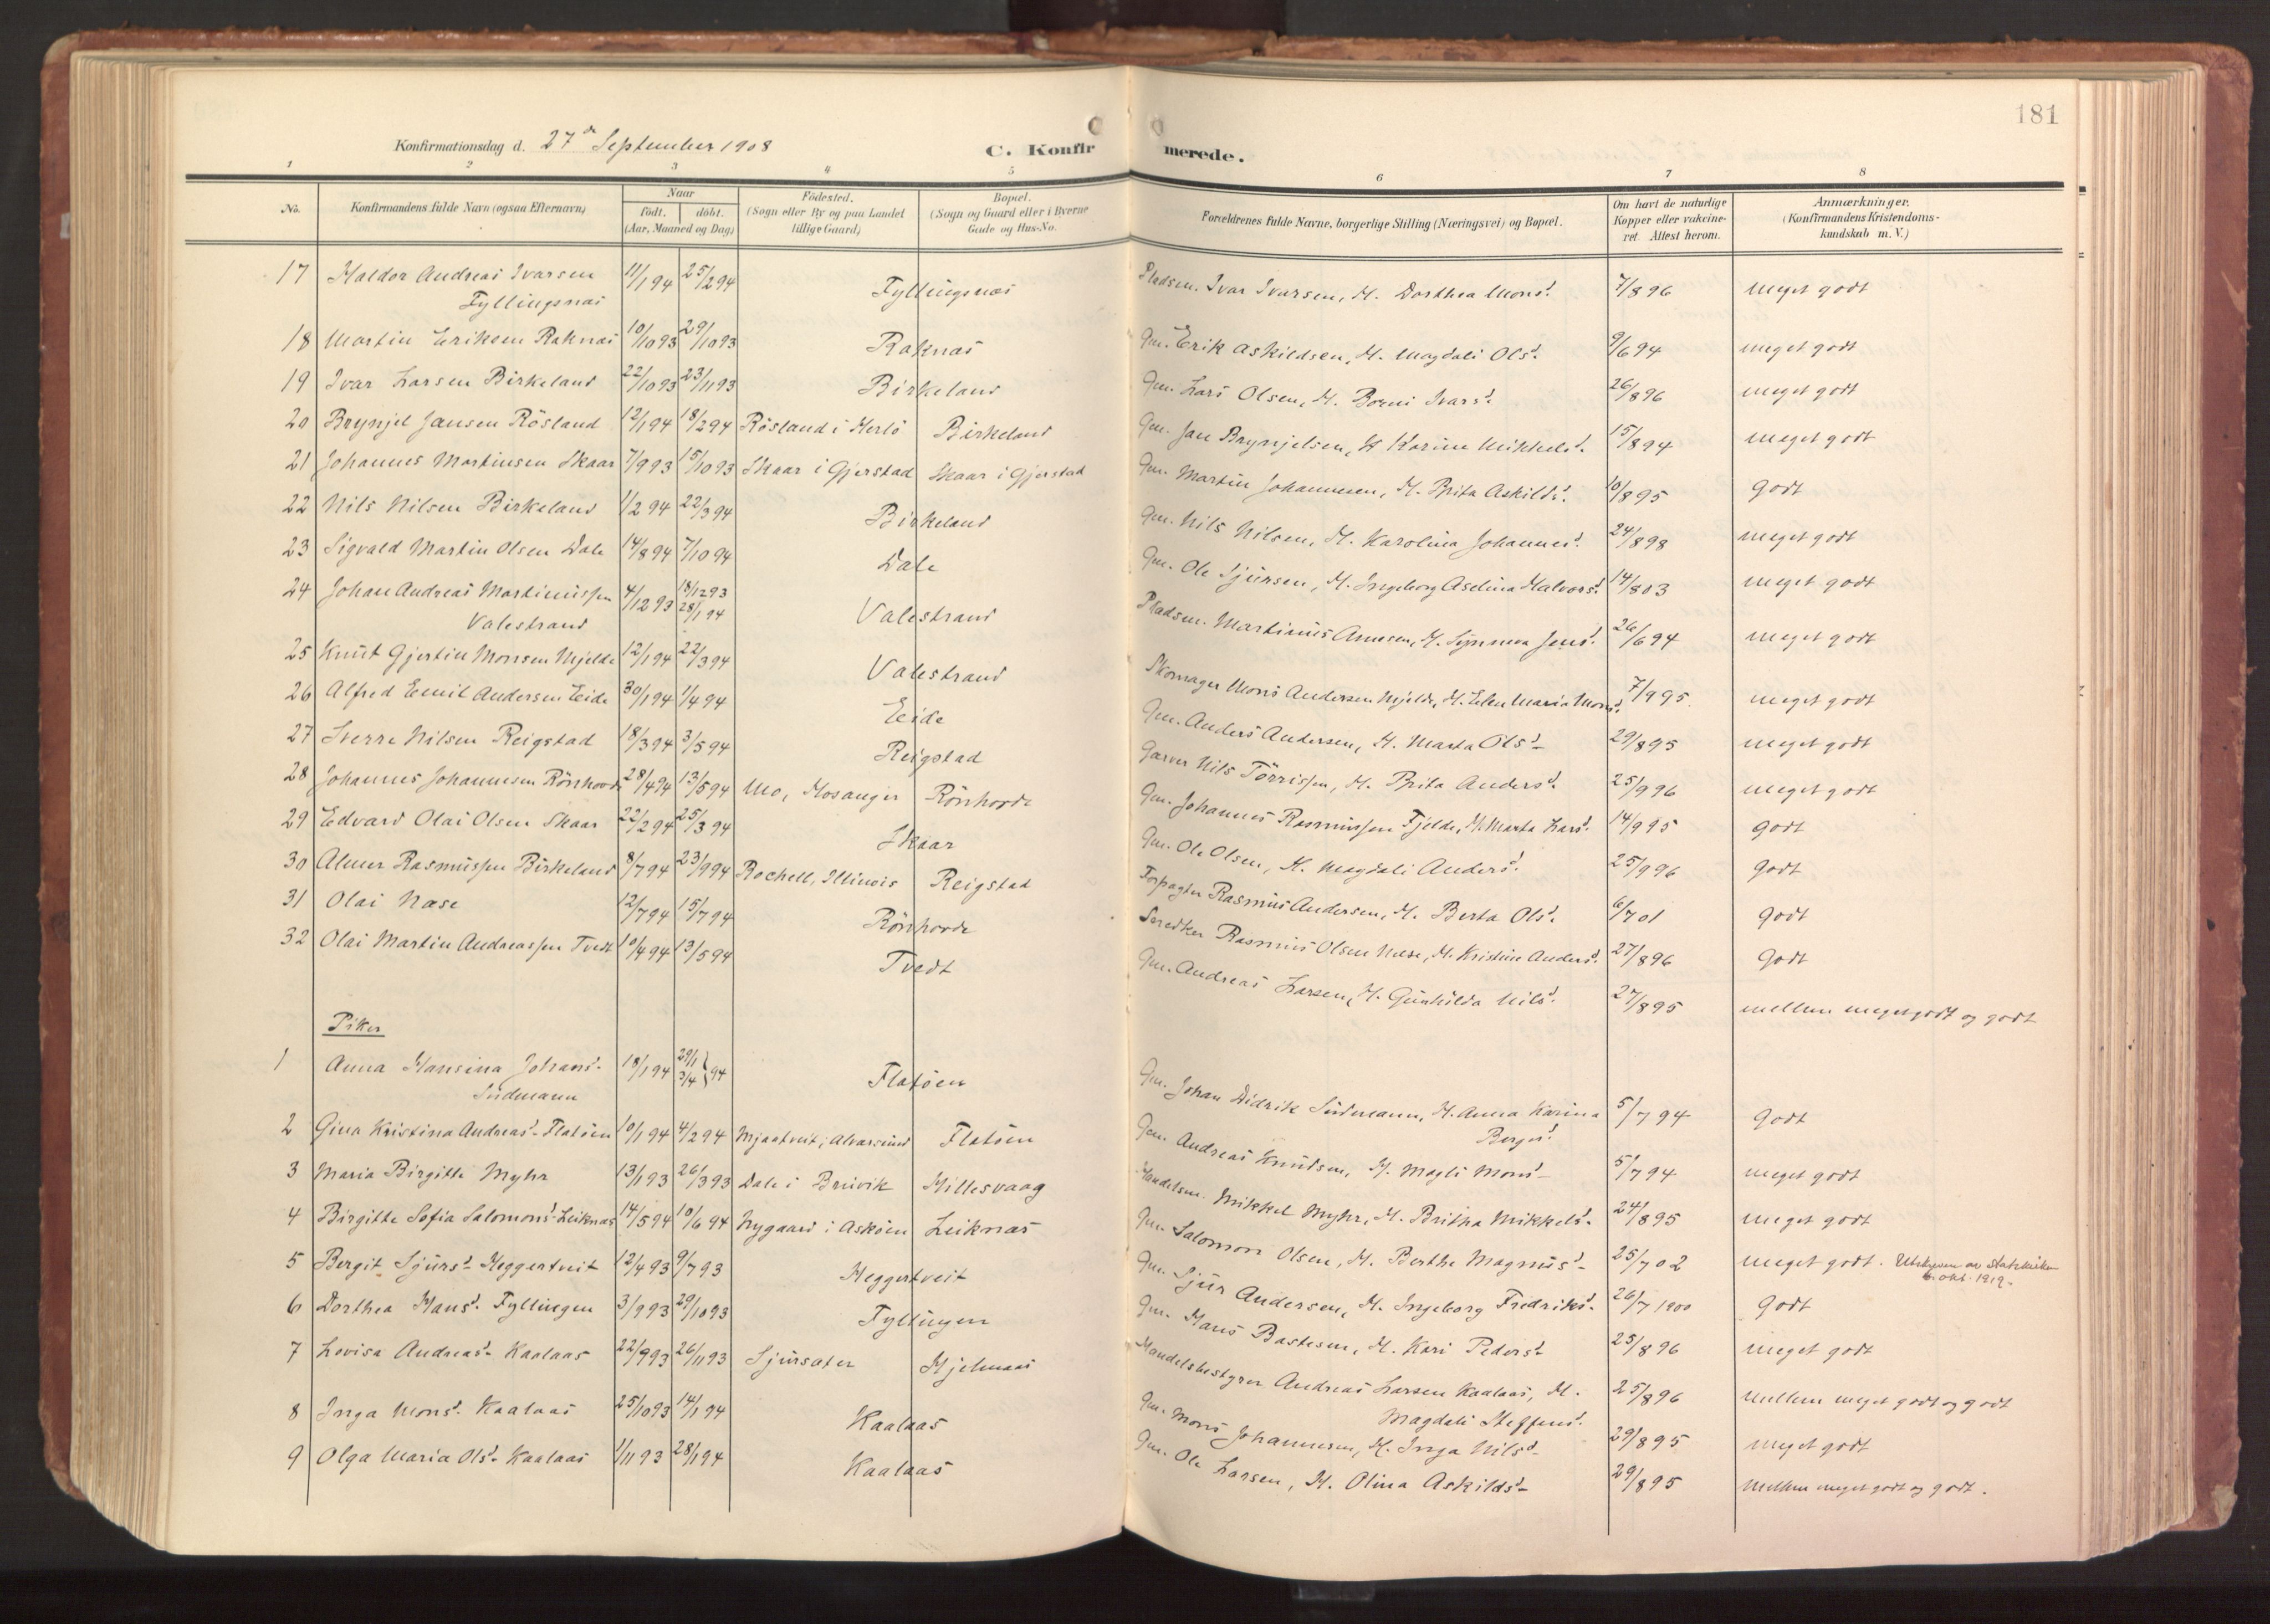 181
Konfirmationsdag d. 27de September 1908
C. Konfirmerede.
1 2 3 4 5 6 7 8
No. | Konfirmandens fulde Navn (ogsaa Efternavn) | Naar födt. döbt. (Aar, Maaned og Dag) | Födested. (Sogn eller By og paa Landet tillige Gaard) | Bopæl. (Sogn og Gaard eller i Byerne Gade og Hus-No. | Forældrenes fulde Navne, borgerlige Stilling (Næringsvei) og Bopæl. | Om havt de naturlige Kopper eller vakcineret. Attest herom. | Anmærkninger. (Konfirmandens Kristendomskundskab m. V.)
17 Haldor Andreas Ivarsen Fyllingsnæs 11/1 94 25/2 94 Fyllingsnæs Pladsm. Ivar Ivarsen, H. Dorthea Monsd. 7/8 96 meget godt
18 Martin Eriksen Raknæs 10/10 93 29/10 93 Raknæs Gm. Erik Askildsen, H. Magdali Olsd. 9/6 94 meget godt
19 Ivar Larsen Birkeland 22/10 93 23/11 93 Birkeland Gm. Lars Olsen, H. Borni Ivarsd. 26/8 96 meget godt
20 Brynjel Jansen Rösland 12/1 94 18/2 94 Rösland i Herlö Birkeland Gm. Jan Brynjelsen, H. Karine Mikkelsd. 15/8 94 meget godt
21 Johannes Martinsen Skaar 7/9 93 15/10 93 Skaar i Gjerstad Skaar i Gjerstad Gm. Martin Johannesen, H. Brita Askildsd. 10/8 95 Godt
22 Nils Nilsen Birkeland 1/2 94 22/3 94 Birkeland Gm. Nils Nilsen, H. Karolina Johannesd. 24/8 98 meget godt
23 Sigvald Martin Olsen Dale 14/8 94 7/10 94 Dale Gm. Ole Sjursen, H. Ingeborg Aselina Halvorsd. 14/8 03 meget godt
24 Johan Andreas Martinussen Valestrand 4/12 93 18/12 93 28/1 94 Valestrand Pladsm. Martinus Arnesen, H. Synneva Jensd. 26/6 94 meget godt
25 Knut Gjertin Monsen Mjelde 12/1 94 22/3 94 Valestrand Skomager Mons Andersen Mjelde, H. Elen Maria Monsd. 7/9 95. meget godt
26 Alfred Emil Andersen Eide 30/1 94 1/4 94 Eide Gm. Anders Andersen, H. Marta Olsd. 29/8 95 meget godt
27 Sverre Nilsen Reigstad 18/3 94 3/5 94 Reigstad Garver Nils Törrissen, H. Brita Andersd. 25/9 96 meget godt
28 Johannes Johannesen Rönhovde 28/4 94 13/5 94 Mo, Hosanger Rönhovde Gm. Johannes Rasmussen Fjelde, H. Marta Larsd. 14/9 95 godt
29 Edvard Olai Olsen Skaar 22/2 94 25/3 94 Skaar Gm. Ole Olsen, H. Magdali Andersd. 25/9 96 Godt
30 Almer Rasmussen Birkeland 8/7 94 23/9 94 Rochell, Illinois Reigstad Forpagter Rasmus Andersen, H. Berta Olsd. 6/7 01 Godt
31 Olai Næse 12/7 94 15/7 94 Rönhovde Snedker Rasmus Olsen Næse, H. Kristine Andersd. 27/8 96 Godt
32 Olai Martin Andreassen Tvedt 10/4 94 13/5 94 Tvedt Gm. Andreas Larsen, H. Gunhilda Nilsd. 27/8 95 mellem meget godt og godt
Piker
1 Anna Hansina Johansd. Sudmann 18/1 94 29/1 3/4 } 94 Flatöen Gm. Johan Didrik Sudmann, H. Anna Karina Bergesd. 5/7 94 Godt
2 Gina Kristina Andreasd. Flatöen 10/1 94 4/2 94 Mjaatveit, Alvarsund Flatöen Gm. Andreas Knudsen, H. Magli Monsd. 5/7 94 meget godt
3 Maria Birgitte Myhr 13/1 93 26/3 93 Dale i Bruvik Hillesvaag Handelsm. Mikkel Myhr, H. Britha Mikkelsd. 24/8 95 meget godt
4 Birgitte Sofia Salomonsd. Leiknæs 14/5 94 10/6 94 Nygaard i Asköen Leiknæs Gm. Salomon Olsen, H. Berthe Magnusd. 25/7 02 meget godt. Utskreven av statskirken 6. okt. 1919.
5 Bergit Sjursd. Heggertveit 12/4 93 9/7 93 Heggertveit Gm. Sjur Andersen, H. Ingeborg Fredriksd. 26/7 1900 Godt
6 Dorthea Hansd. Fyllingen 3/9 93 29/10 93 Fyllingen Gm. Hans Bastesen, H. Kari Pedersd. 25/8 96 meget godt
7 Lovisa Andreasd. Kaalaas 22/9 93 26/11 93 Sjursæter Hjelmaas Handelsbestyrer Andreas Larsen Kaalaas, H. Magdeli Steffensd. 25/8 96 mellem meget godt og godt
8 Inga Monsd. Kaalaas 25/10 93 14/1 94 Kaalaas Gm. Mons Johannesen, H. Inga Nilsd. 29/8 95 meget godt
9 Olga Maria Olsd. Kaalaas 1/11 93 28/1 94 Kaalaas Gm. Ole Larsen, H. Olina Askildsd. 29/8 95 mellem meget godt og godt.